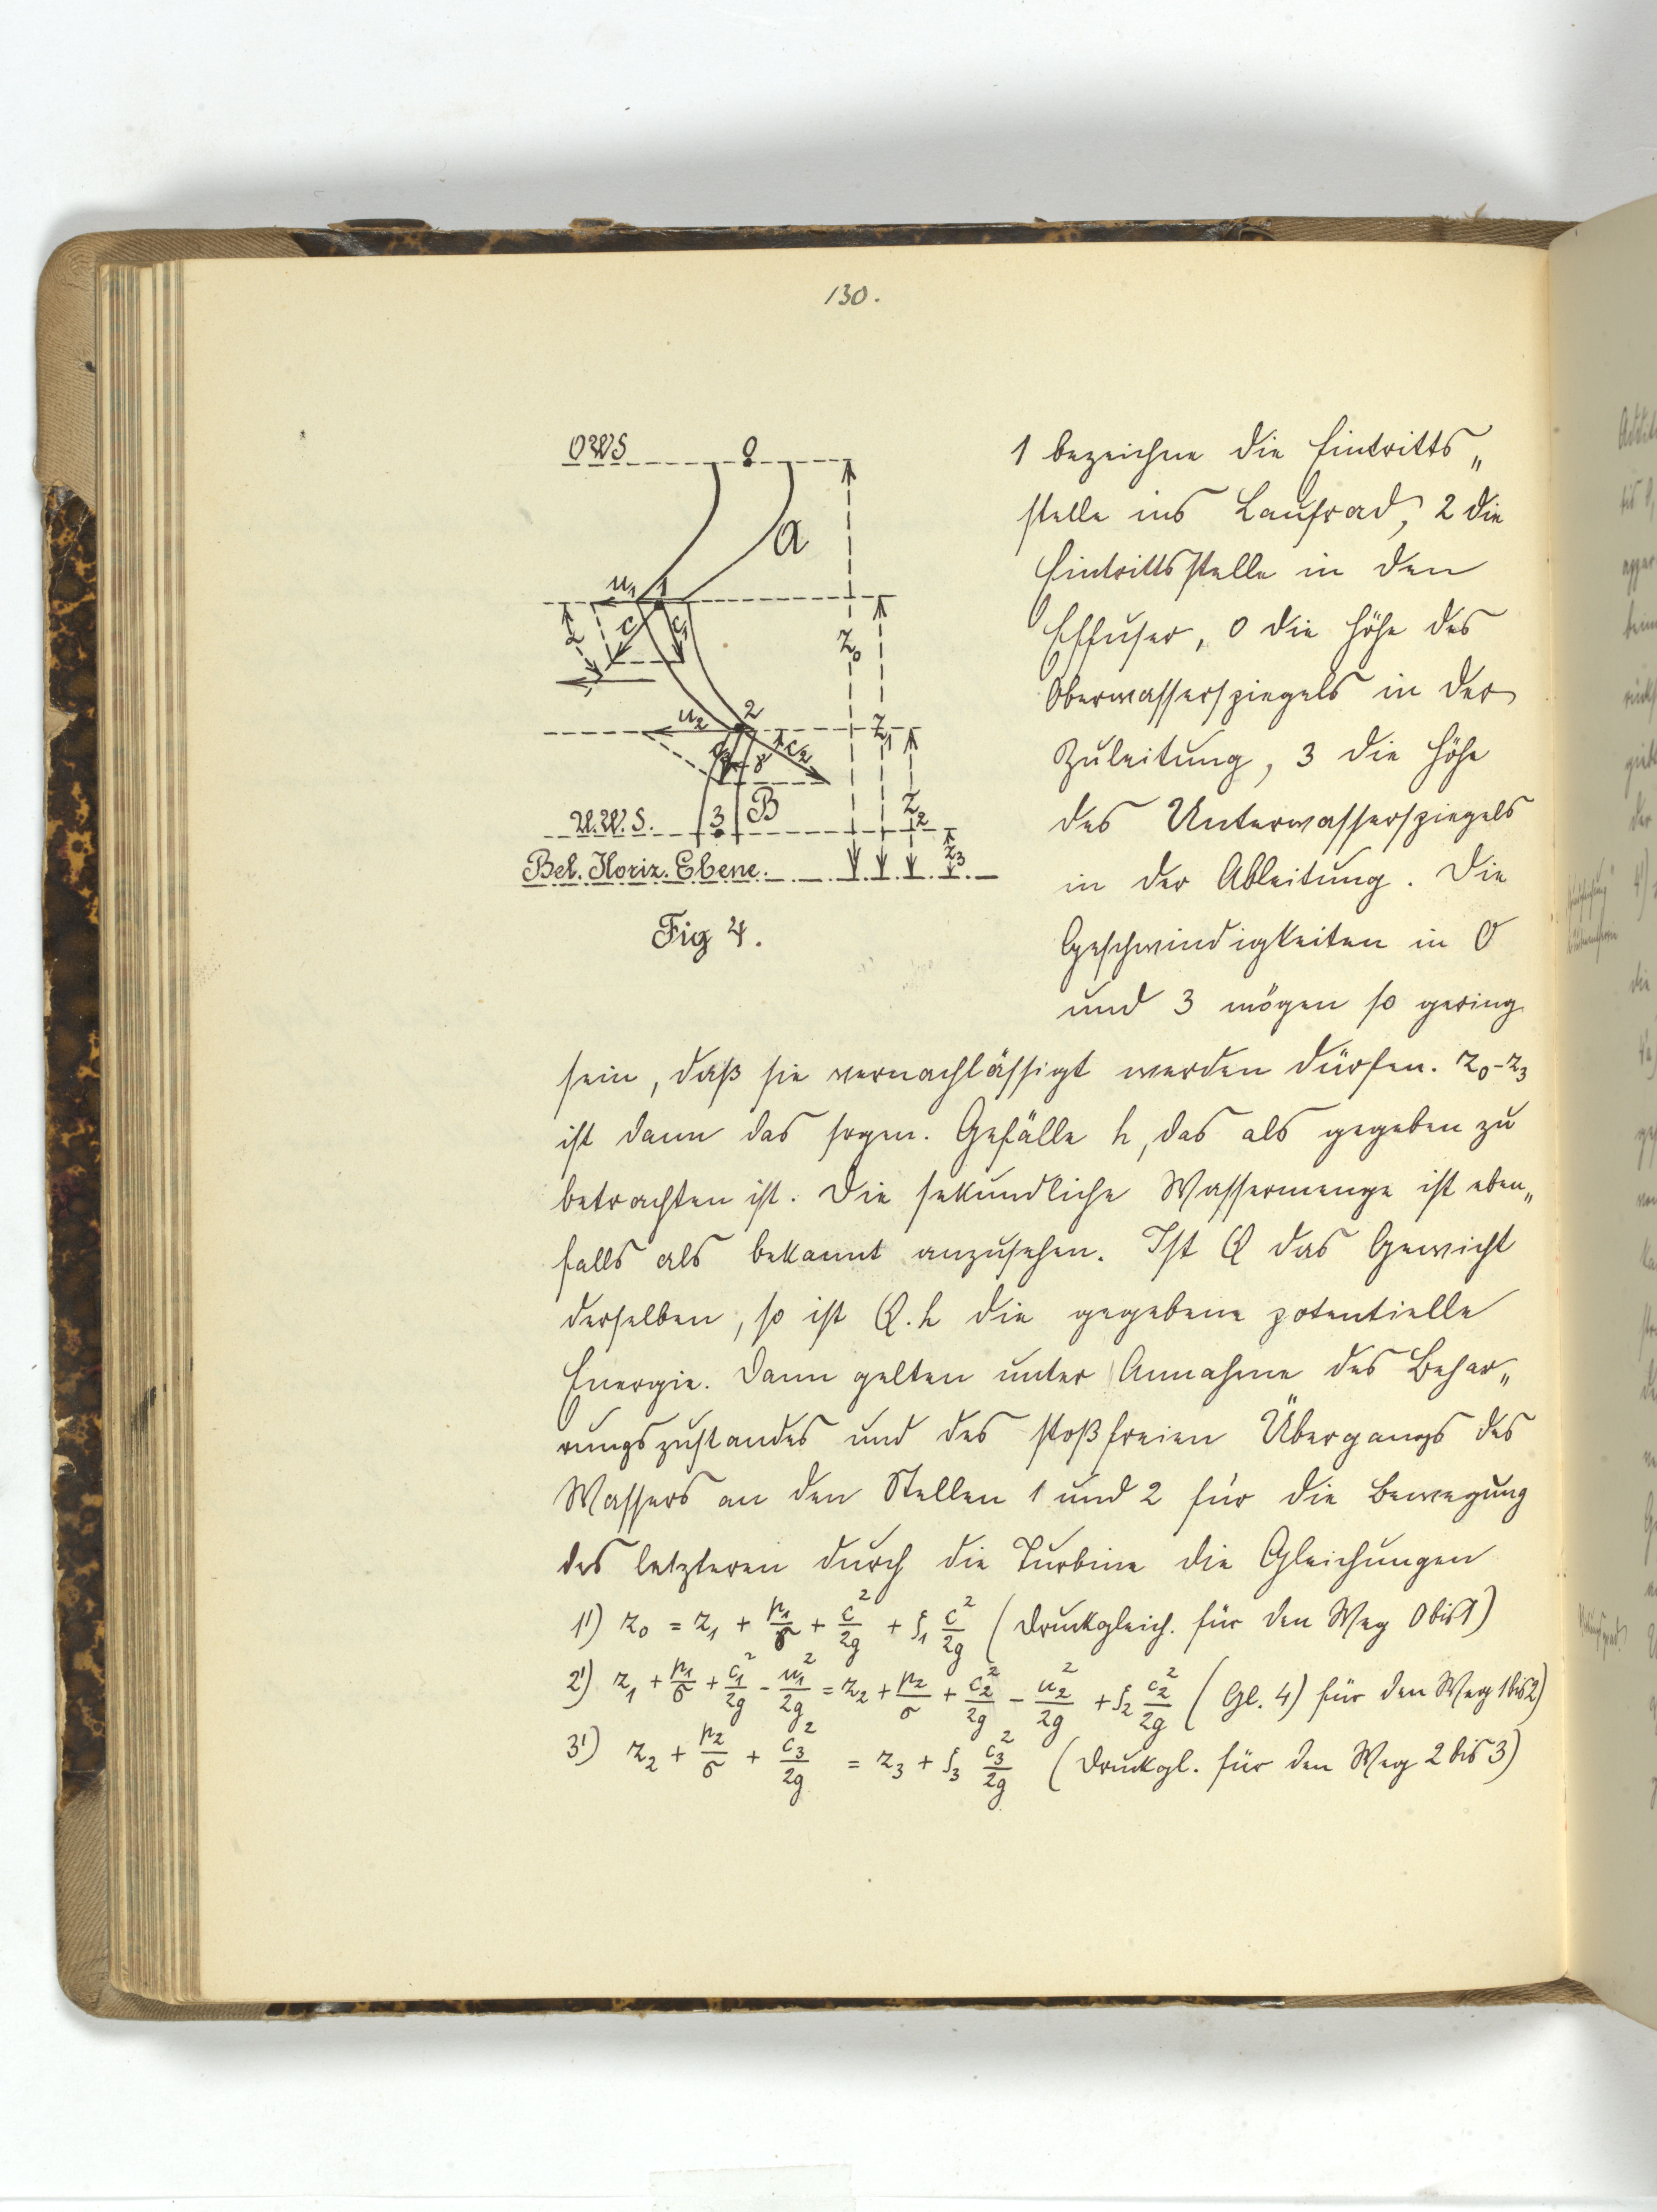 130.
OWS 0
a
u₁ 1
α c c₁
z₀
u₂ 2
z₁
γ c₂
B
z₂
U.W.S. 3
z₃
Bel. Horiz. Ebene.
Fig 4.
1 bezeichne die Eintritts„
stelle ins Laufrad, 2 die
Eintrittsstelle in den
Effuser, 0 die Höhe des
Oberwasserspiegels in der
Zuleitung, 3 die Höhe
des Unterwasserspiegels
in der Ableitung. Die
Geschwindigkeiten in 0
und 3 mögen so gering
sein, daß sie vernachlässigt werden dürfen. z₀-z₃
ist dann das sogen. Gefälle h, das als gegeben zu
betrachten ist. Die sekundliche Wassermenge ist eben„
falls als bekannt anzusehen. Ist Q das Gewicht
derselben, so ist Q.h die gegebene potentielle
Energie. Dann gelten unter Annahme des Behar„
rungszustandes und des stoßfreien Übergangs des
Wassers an den Stellen 1 und 2 für die Bewegung
des letzteren durch die Turbine die Gleichungen
1') z₀ = z₁ + p₁/σ + c²/2g + ζ₁ c²/2g (Druckgleich. für den Weg 0 bis 1)
2') z₁ + p₁/σ + c₁²/2g - u₁²/2g = z₂ + p₂/σ + c₂²/2g - u₂²/2g + ζ₂ c₂²/2g (Gl. 4) für den Weg 1 bis 2)
3') z₂ + p₂/σ + c₃²/2g = z₃ + ζ₃ c₃²/2g (Druckgl. für den Weg 2 bis 3)